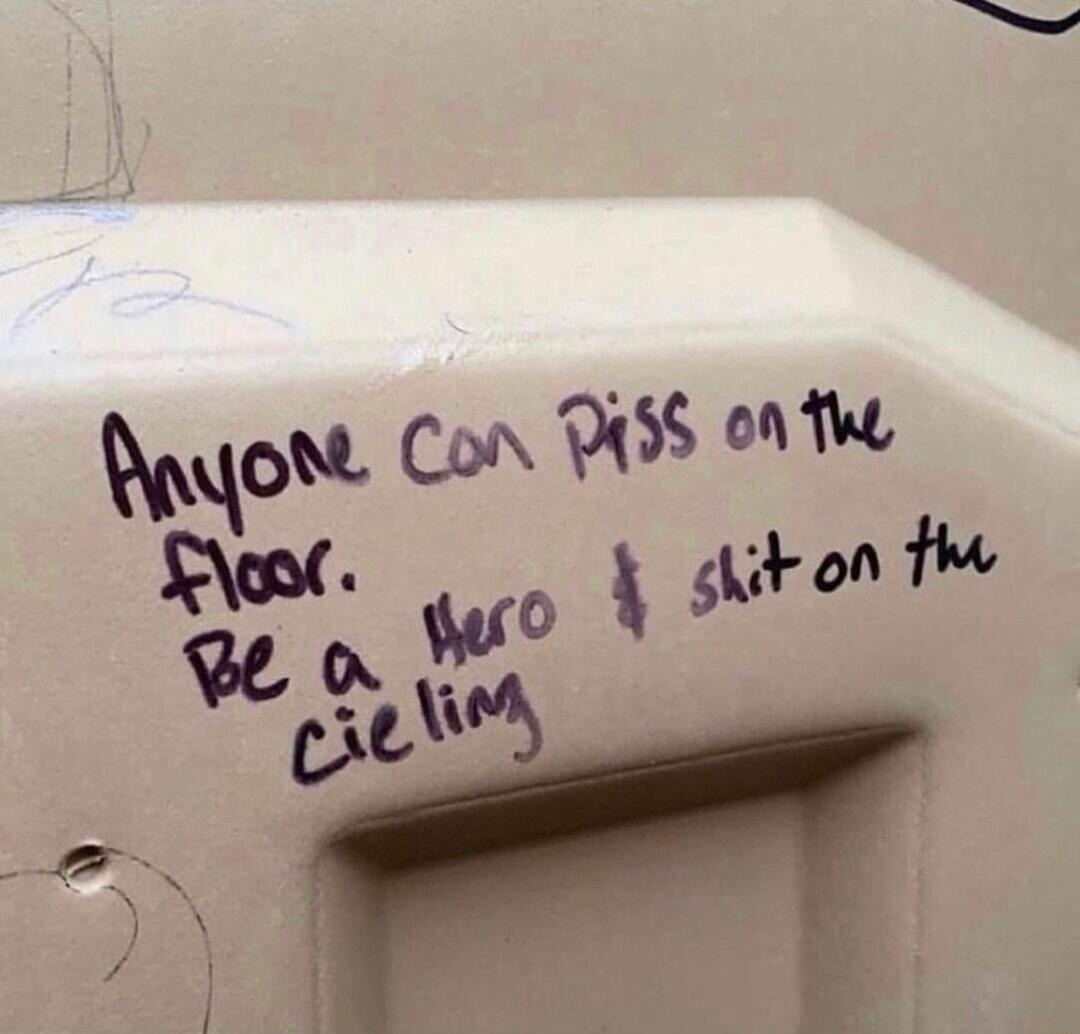 Anyone can piss on the
floor.
Be a Hero & shit on the
cieling